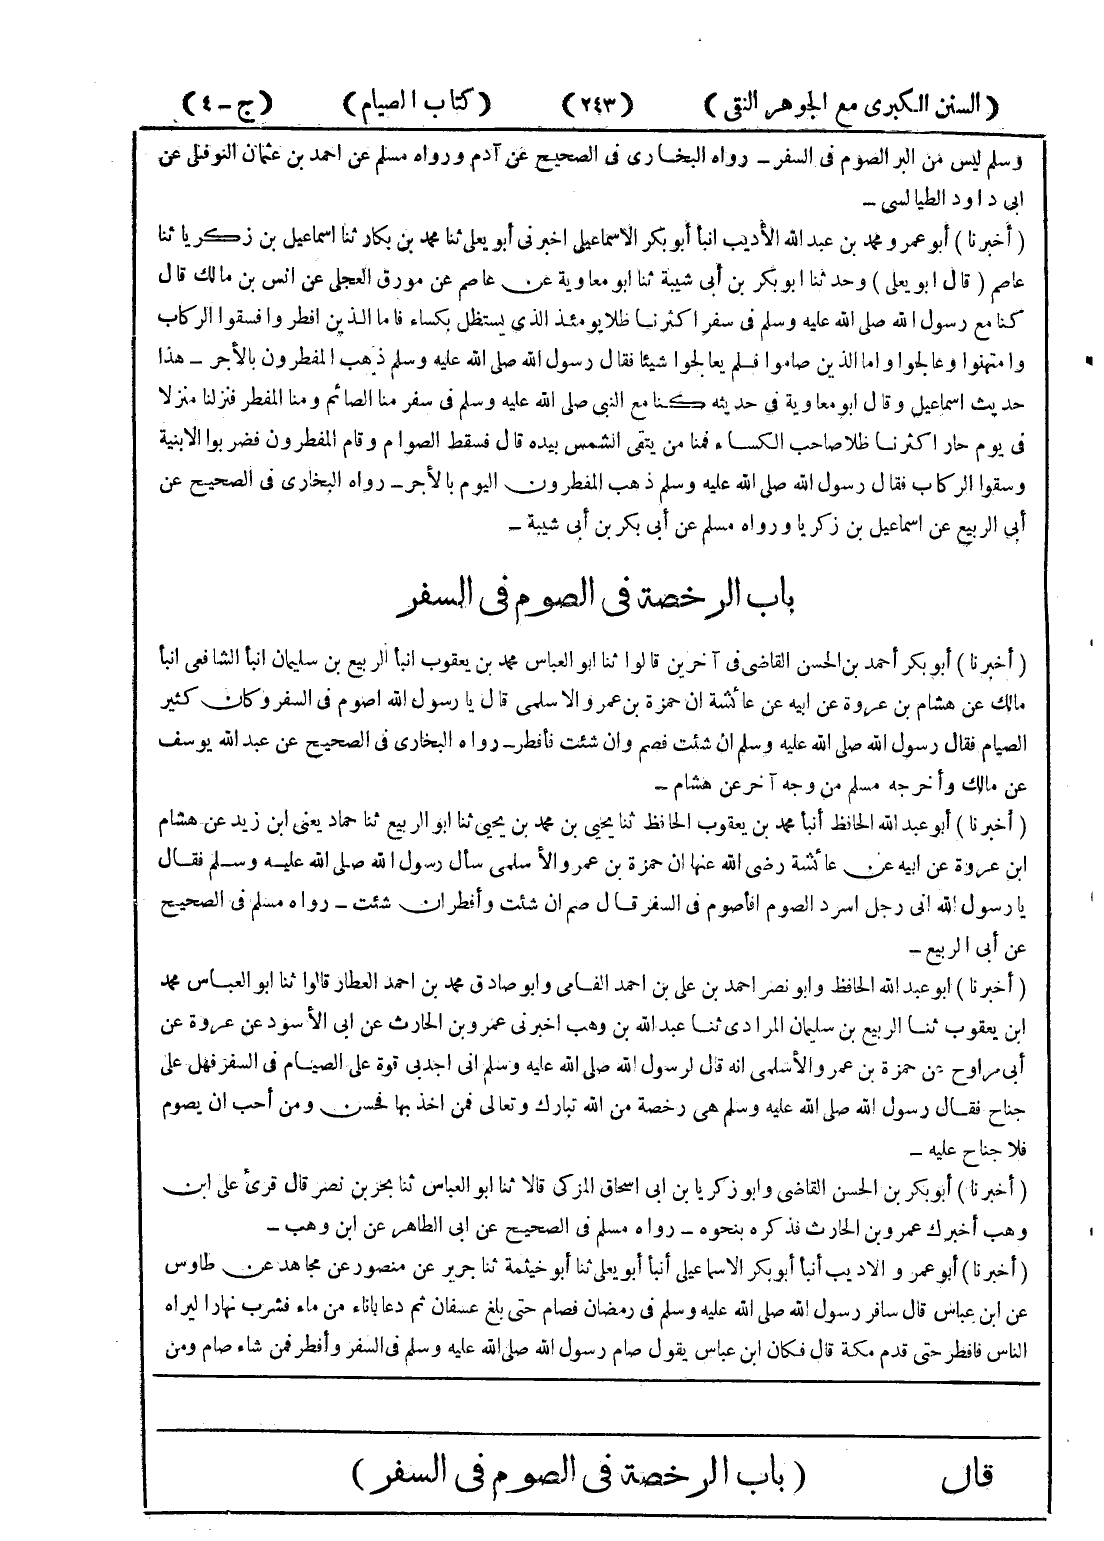 ( السنن الكبرى مع الجوهر النقى ) ( ٢٤٣ ) ( كتاب الصيام ) ( ج - ٤ )
وسلم ليس من البر الصوم فى السفر - رواه البخارى فى الصحيح عن آدم ورواه مسلم عن احمد بن عثمان النوفلى عن
ابى داود الطيالسى -
( أخبرنا ) أبو عمرو محمد بن عبد الله الأديب انبأ أبو بكر الاسماعيلى اخبرنى أبو يعلى ثنا محمد بن بكار ثنا اسماعيل بن زكريا ثنا
عاصم ( قال ابو يعلى ) وحدثنا ابو بكر بن أبى شيبة ثنا ابو معاوية عن عاصم عن مورق العجلى عن انس بن مالك قال
كنا مع رسول الله صلى الله عليه وسلم فى سفر اكثرنا ظلا يومئذ الذى يستظل بكساء فاما الذين افطروا فسقوا الركاب
وامتهنوا وعالجوا واما الذين صاموا فلم يعالجوا شيئا فقال رسول الله صلى الله عليه وسلم ذهب المفطرون بالأجر - هذا
حديث اسماعيل وقال ابو معاوية فى حديثه كنا مع النبى صلى الله عليه وسلم فى سفر منا الصائم ومنا المفطر فنزلنا منزلا
فى يوم حار اكثرنا ظلا صاحب الكساء فمنا من يتقى الشمس بيده قال فسقط الصوام وقام المفطرون فضربوا الابنية
وسقوا الركاب فقال رسول الله صلى الله عليه وسلم ذهب المفطرون اليوم بالأجر - رواه البخارى فى الصحيح عن
أبى الربيع عن اسماعيل بن زكريا ورواه مسلم عن أبى بكر بن أبى شيبة -
باب الرخصة فى الصوم فى السفر
( أخبرنا ) أبو بكر أحمد بن الحسن القاضى فى آخرين قالوا ثنا ابو العباس محمد بن يعقوب انبأ الربيع بن سليمان انبأ الشافعى انبأ
مالك عن هشام بن عروة عن ابيه عن عائشة ان حمزة بن عمرو الاسلمى قال يا رسول الله اصوم فى السفر وكان كثير
الصيام فقال رسول الله صلى الله عليه وسلم ان شئت فصم وان شئت فأفطر - رواه البخارى فى الصحيح عن عبد الله يوسف
عن مالك وأخرجه مسلم من وجه آخر عن هشام -
( أخبرنا ) أبو عبد الله الحافظ أنبأ محمد بن يعقوب الحافظ ثنا يحيى بن محمد بن يحيى ثنا ابو الربيع ثنا حماد يعنى ابن زيد عن هشام
ابن عروة عن ابيه عن عائشة رضى الله عنها ان حمزة بن عمرو الأسلمى سأل رسول الله صلى الله عليه وسلم فقال
يا رسول الله انى رجل اسرد الصوم افأصوم فى السفر قال صم ان شئت وأفطر ان شئت - رواه مسلم فى الصحيح
عن أبى الربيع -
( أخبرنا ) ابو عبد الله الحافظ وابو نصر احمد بن على بن احمد الفامى وابو صادق محمد بن احمد العطار قالوا ثنا ابو العباس محمد
ابن يعقوب ثنا الربيع بن سليمان المرادى ثنا عبد الله بن وهب اخبرنى عمرو بن الحارث عن ابى الأسود عن عروة عن
أبى مراوح عن حمزة بن عمرو الأسلمى انه قال لرسول الله صلى الله عليه وسلم انى اجدبى قوة على الصيام فى السفر فهل على
جناح فقال رسول الله صلى الله عليه وسلم هى رخصة من الله تبارك وتعالى فمن اخذ بها فحسن ومن أحب ان يصوم
فلا جناح عليه -
( أخبرنا ) أبو بكر بن الحسن القاضى وابو زكريا بن ابى اسحاق المزكى قالا ثنا ابو العباس ثنا بحر بن نصر قال قرئ على ابن
وهب أخبرك عمرو بن الحارث فذكره بنحوه - رواه مسلم فى الصحيح عن ابى الطاهر عن ابن وهب -
( أخبرنا ) أبو عمرو الاديب أنبأ أبو بكر الاسماعيلى أنبأ أبو يعلى ثنا أبو خيثمة ثنا جرير عن منصور عن مجاهد عن طاوس
عن ابن عباس قال سافر رسول الله صلى الله عليه وسلم فى رمضان فصام حتى بلغ عسفان ثم دعا باناء من ماء فشرب نهارا ليراه
الناس فافطر حتى قدم مكة قال فكان ابن عباس يقول صام رسول الله صلى الله عليه وسلم فى السفر وأفطر فمن شاء صام ومن
قال ( باب الرخصة فى الصوم فى السفر )